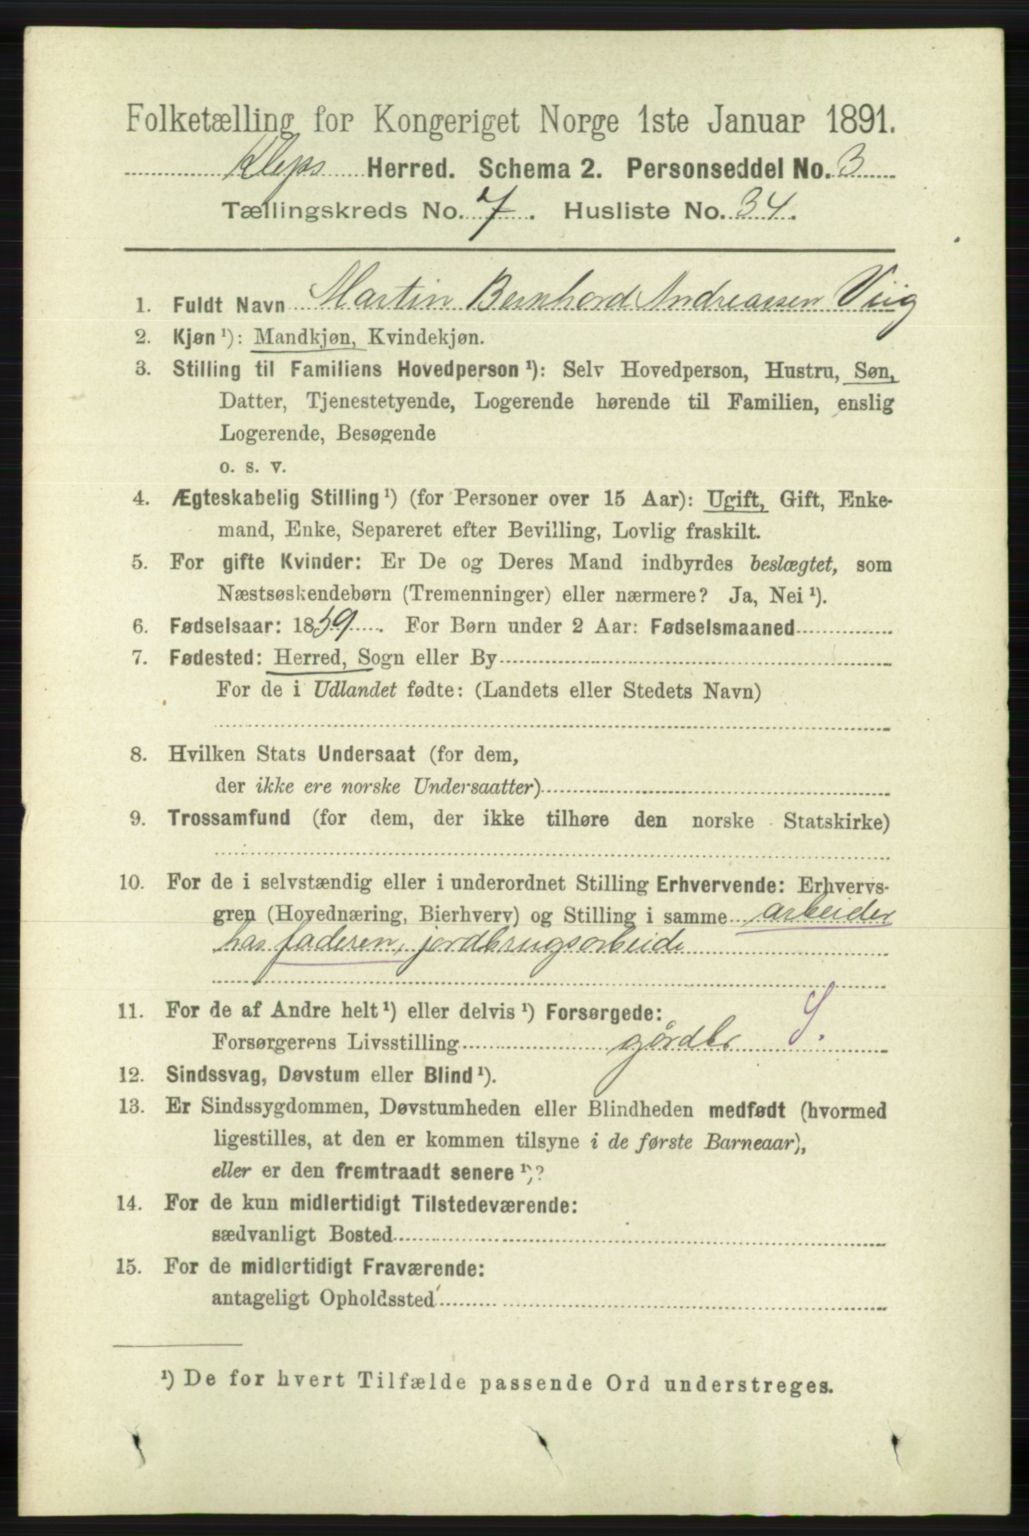 Folketælling for Kongeriget Norge 1ste Januar 1891.
Kleps Herred. Schema 2. Personseddel No. 3
Tællingskreds No. 7. Husliste No. 34.
1. Fuldt Navn Martin Bernhard Andreassen Viig
2. Kjøn ¹): Mandkjøn, Kvindekjøn.
3. Stilling til Familiens Hovedperson ¹): Selv Hovedperson, Hustru, Søn,
Datter, Tjenestetyende, Logerende hørende til Familien, enslig
Logerende, Besøgende
o. s. v.
4. Ægteskabelig Stilling ¹) (for Personer over 15 Aar): Ugift, Gift, Enke-
mand, Enke, Separeret efter Bevilling, Lovlig fraskilt.
5. For gifte Kvinder: Er De og Deres Mand indbyrdes beslægtet, som
Næstsøskendebørn (Tremenninger) eller nærmere? Ja, Nei ¹).
6. Fødselsaar: 1859. For Børn under 2 Aar: Fødselsmaaned
7. Fødested: Herred, Sogn eller By
For de i Udlandet fødte: (Landets eller Stedets Navn)
8. Hvilken Stats Undersaat (for dem,
der ikke ere norske Undersaatter)
9. Trossamfund (for dem, der ikke tilhøre den norske Statskirke)
10. For de i selvstændig eller i underordnet Stilling Erhvervende: Erhvervs-
gren (Hovednæring, Bierhverv) og Stilling i samme arbeider
has faderen, jordbrugsarbeide
11. For de af Andre helt ¹) eller delvis ¹) Forsørgede: S.
Forsørgerens Livsstilling gårdbr
12. Sindssvag, Døvstum eller Blind ¹).
13. Er Sindssygdommen, Døvstumheden eller Blindheden medfødt (hvormed
ligestilles, at den er kommen tilsyne i de første Barneaar),
eller er den fremtraadt senere ¹)?
14. For de kun midlertidigt Tilstedeværende:
sædvanligt Bosted
15. For de midlertidigt Fraværende:
antageligt Opholdssted
¹) De for hvert Tilfælde passende Ord understreges.